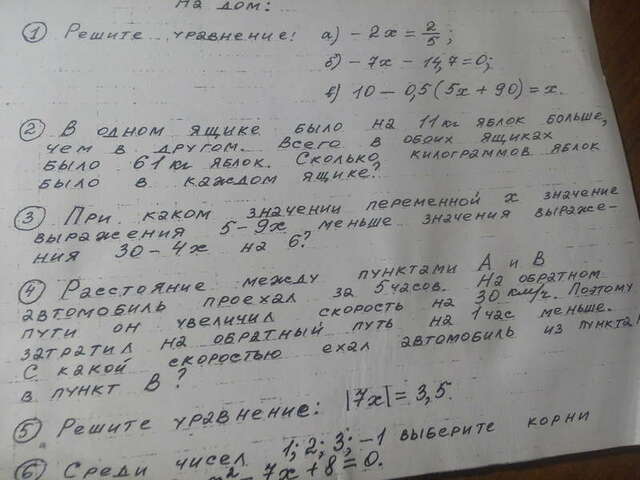 На дом:
① Решите уравнение: а) - 2x = 2/5;
б) - 7x - 14,7 = 0;
в) 10 - 0,5(5x + 90) = x.
② В одном ящике было на 11 кг яблок больше,
чем в другом. Всего в обоих ящиках
было 61 кг яблок. Сколько килограммов яблок
было в каждом ящике?
③ При каком значении переменной x значение
выражения 5-9x меньше значения выраже-
ния 30-4x на 6?
④ Расстояние между пунктами А и В
автомобиль проехал за 5 часов. На обратном
пути он увеличил скорость на 30 км/ч. Поэтому
затратил на обратный путь на 1 час меньше.
С какой скоростью ехал автомобиль из пункта
в пункт В?
⑤ Решите уравнение: |7x| = 3,5.
⑥ Среди чисел 1; 2; 3; -1 выберите корни
- 7x + 8 = 0.